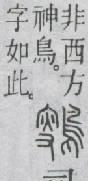 非西方
神鳥。
字如此。